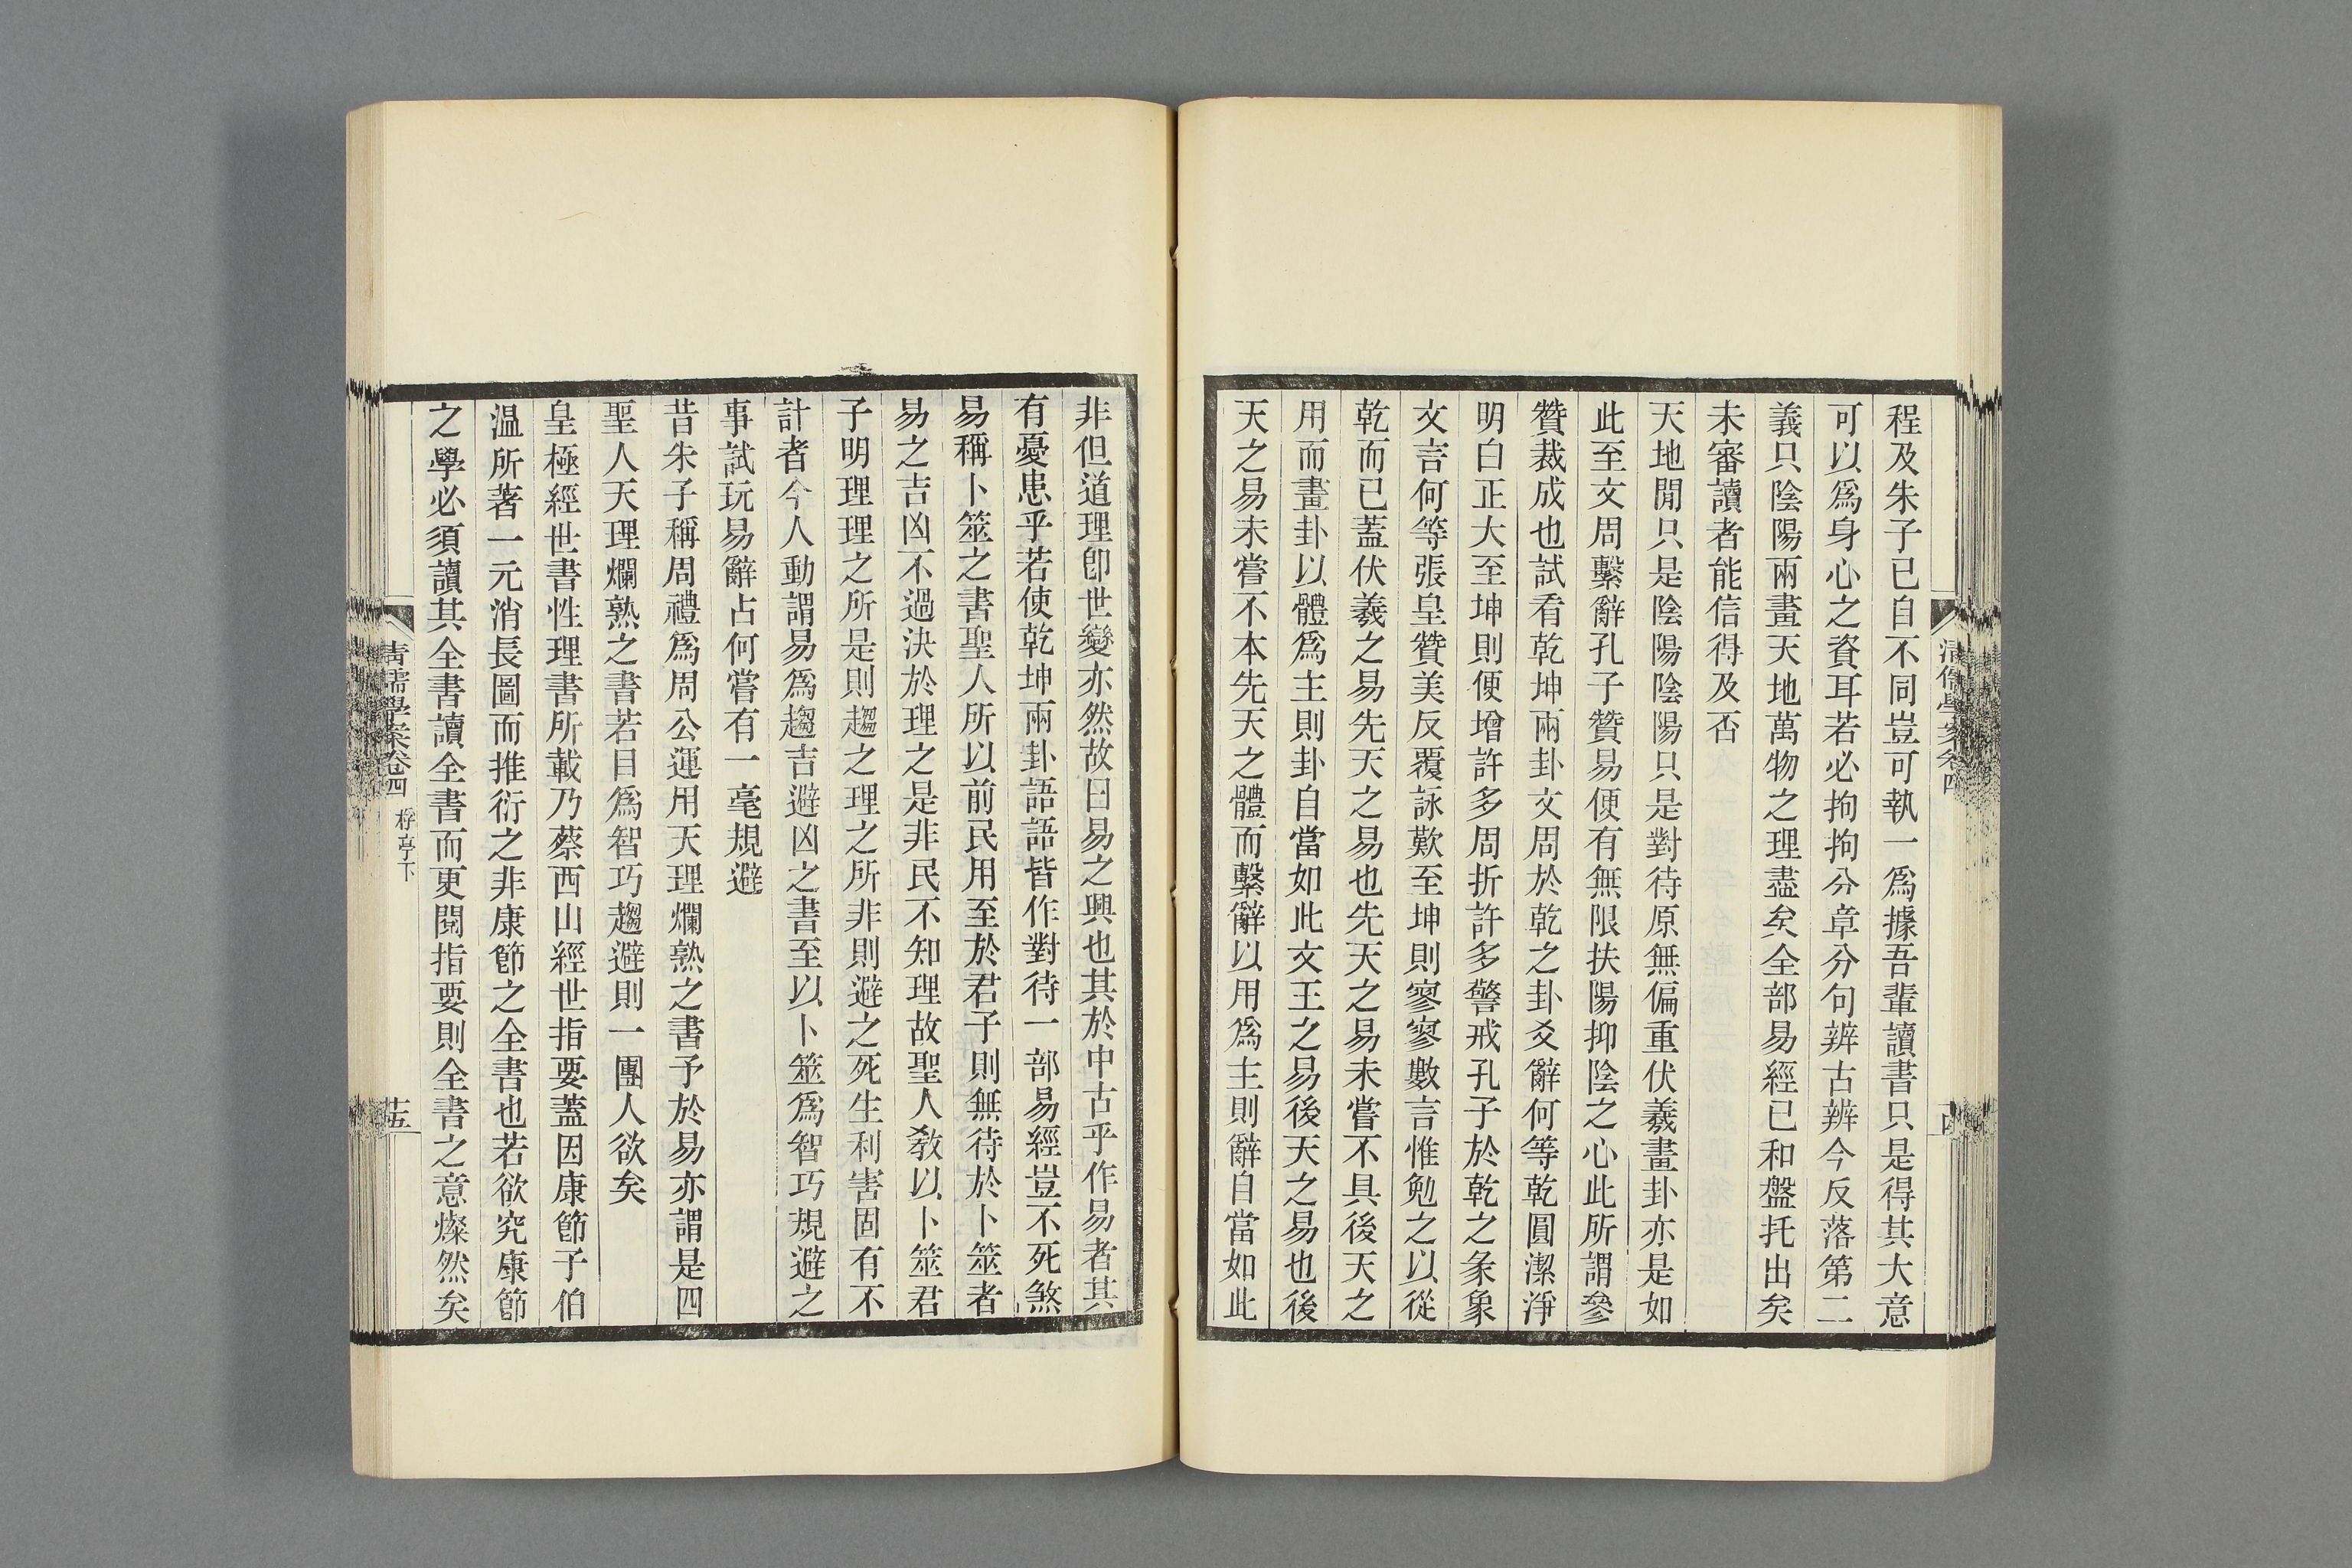 程及朱子已自不同豈可執一爲據吾輩讀書只是得其大意
可以爲身心之資耳若必拘拘分章分句辨古辨今反落第二
義只陰陽兩畫天地萬物之理盡矣全部易經已和盤托出矣
未審讀者能信得及否
天地閒只是陰陽陰陽只是對待原無偏重伏羲畫卦亦是如
此至文周繫辭孔子贊易便有無限扶陽抑陰之心此所謂參
贊裁成也試看乾坤兩卦文周於乾之卦爻辭何等乾圓潔淨
明白正大至坤則便增許多周折許多警戒孔子於乾之彖象
文言何等張皇贊美反覆詠歎至坤則寥寥數言惟勉之以從
乾而已蓋伏羲之易先天之易也先天之易未嘗不具後天之
用而畫卦以體爲主則卦自當如此文王之易後天之易也後
天之易未嘗不本先天之體而繫辭以用爲主則辭自當如此
非但道理卽世變亦然故曰易之興也其於中古乎作易者其
有憂患乎若使乾坤兩卦語語皆作對待一部易經豈不死煞
易稱卜筮之書聖人所以前民用至於君子則無待於卜筮者
易之吉凶不過決於理之是非民不知理故聖人教以卜筮君
子明理理之所是則趨之理之所非則避之死生利害固有不
計者今人動謂易爲趨吉避凶之書至以卜筮爲智巧規避之
事試玩易辭占何嘗有一毫規避
昔朱子稱周禮爲周公運用天理爛熟之書予於易亦謂是四
聖人天理爛熟之書若目爲智巧趨避則一團人欲矣
皇極經世書性理書所載乃蔡西山經世指要蓋因康節子伯
温所著一元消長圖而推衍之非康節之全書也若欲究康節
之學必須讀其全書讀全書而更閱指要則全書之意燦然矣
清儒學案卷四 桴亭下